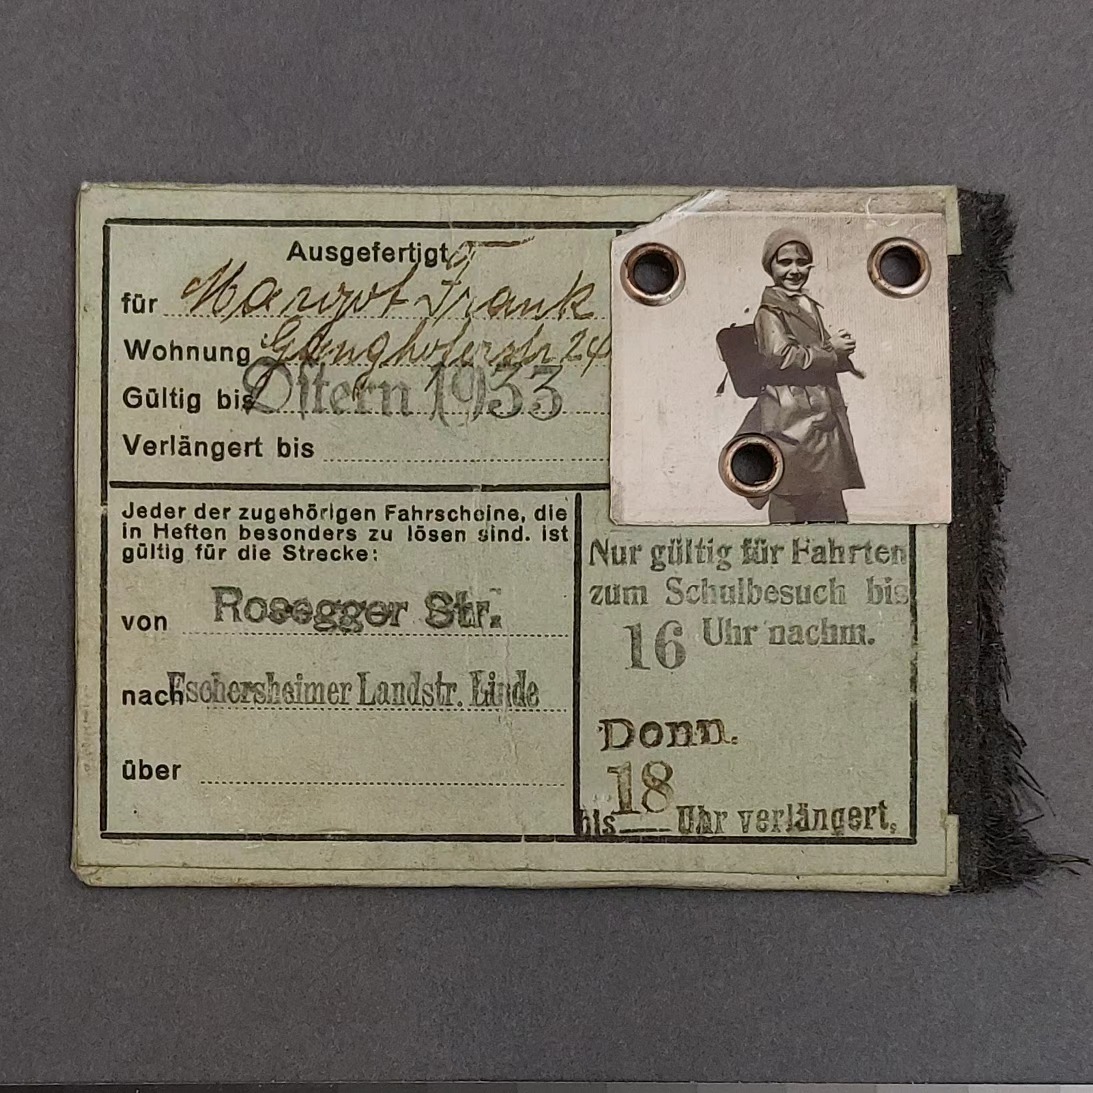 Ausgefertigt
für Margot Frank
Wohnung Ganghoferstr 24
Gültig bis Ostern 1933
Verlängert bis
Jeder der zugehörigen Fahrscheine, die
in Heften besonders zu lösen sind. ist
gültig für die Strecke:
von Rosegger Str.
nach Eschersheimer Landstr. Linde
über
Nur gültig für Fahrten
zum Schulbesuch bis
16 Uhr nachm.
Donn.
18
bis Uhr verlängert.